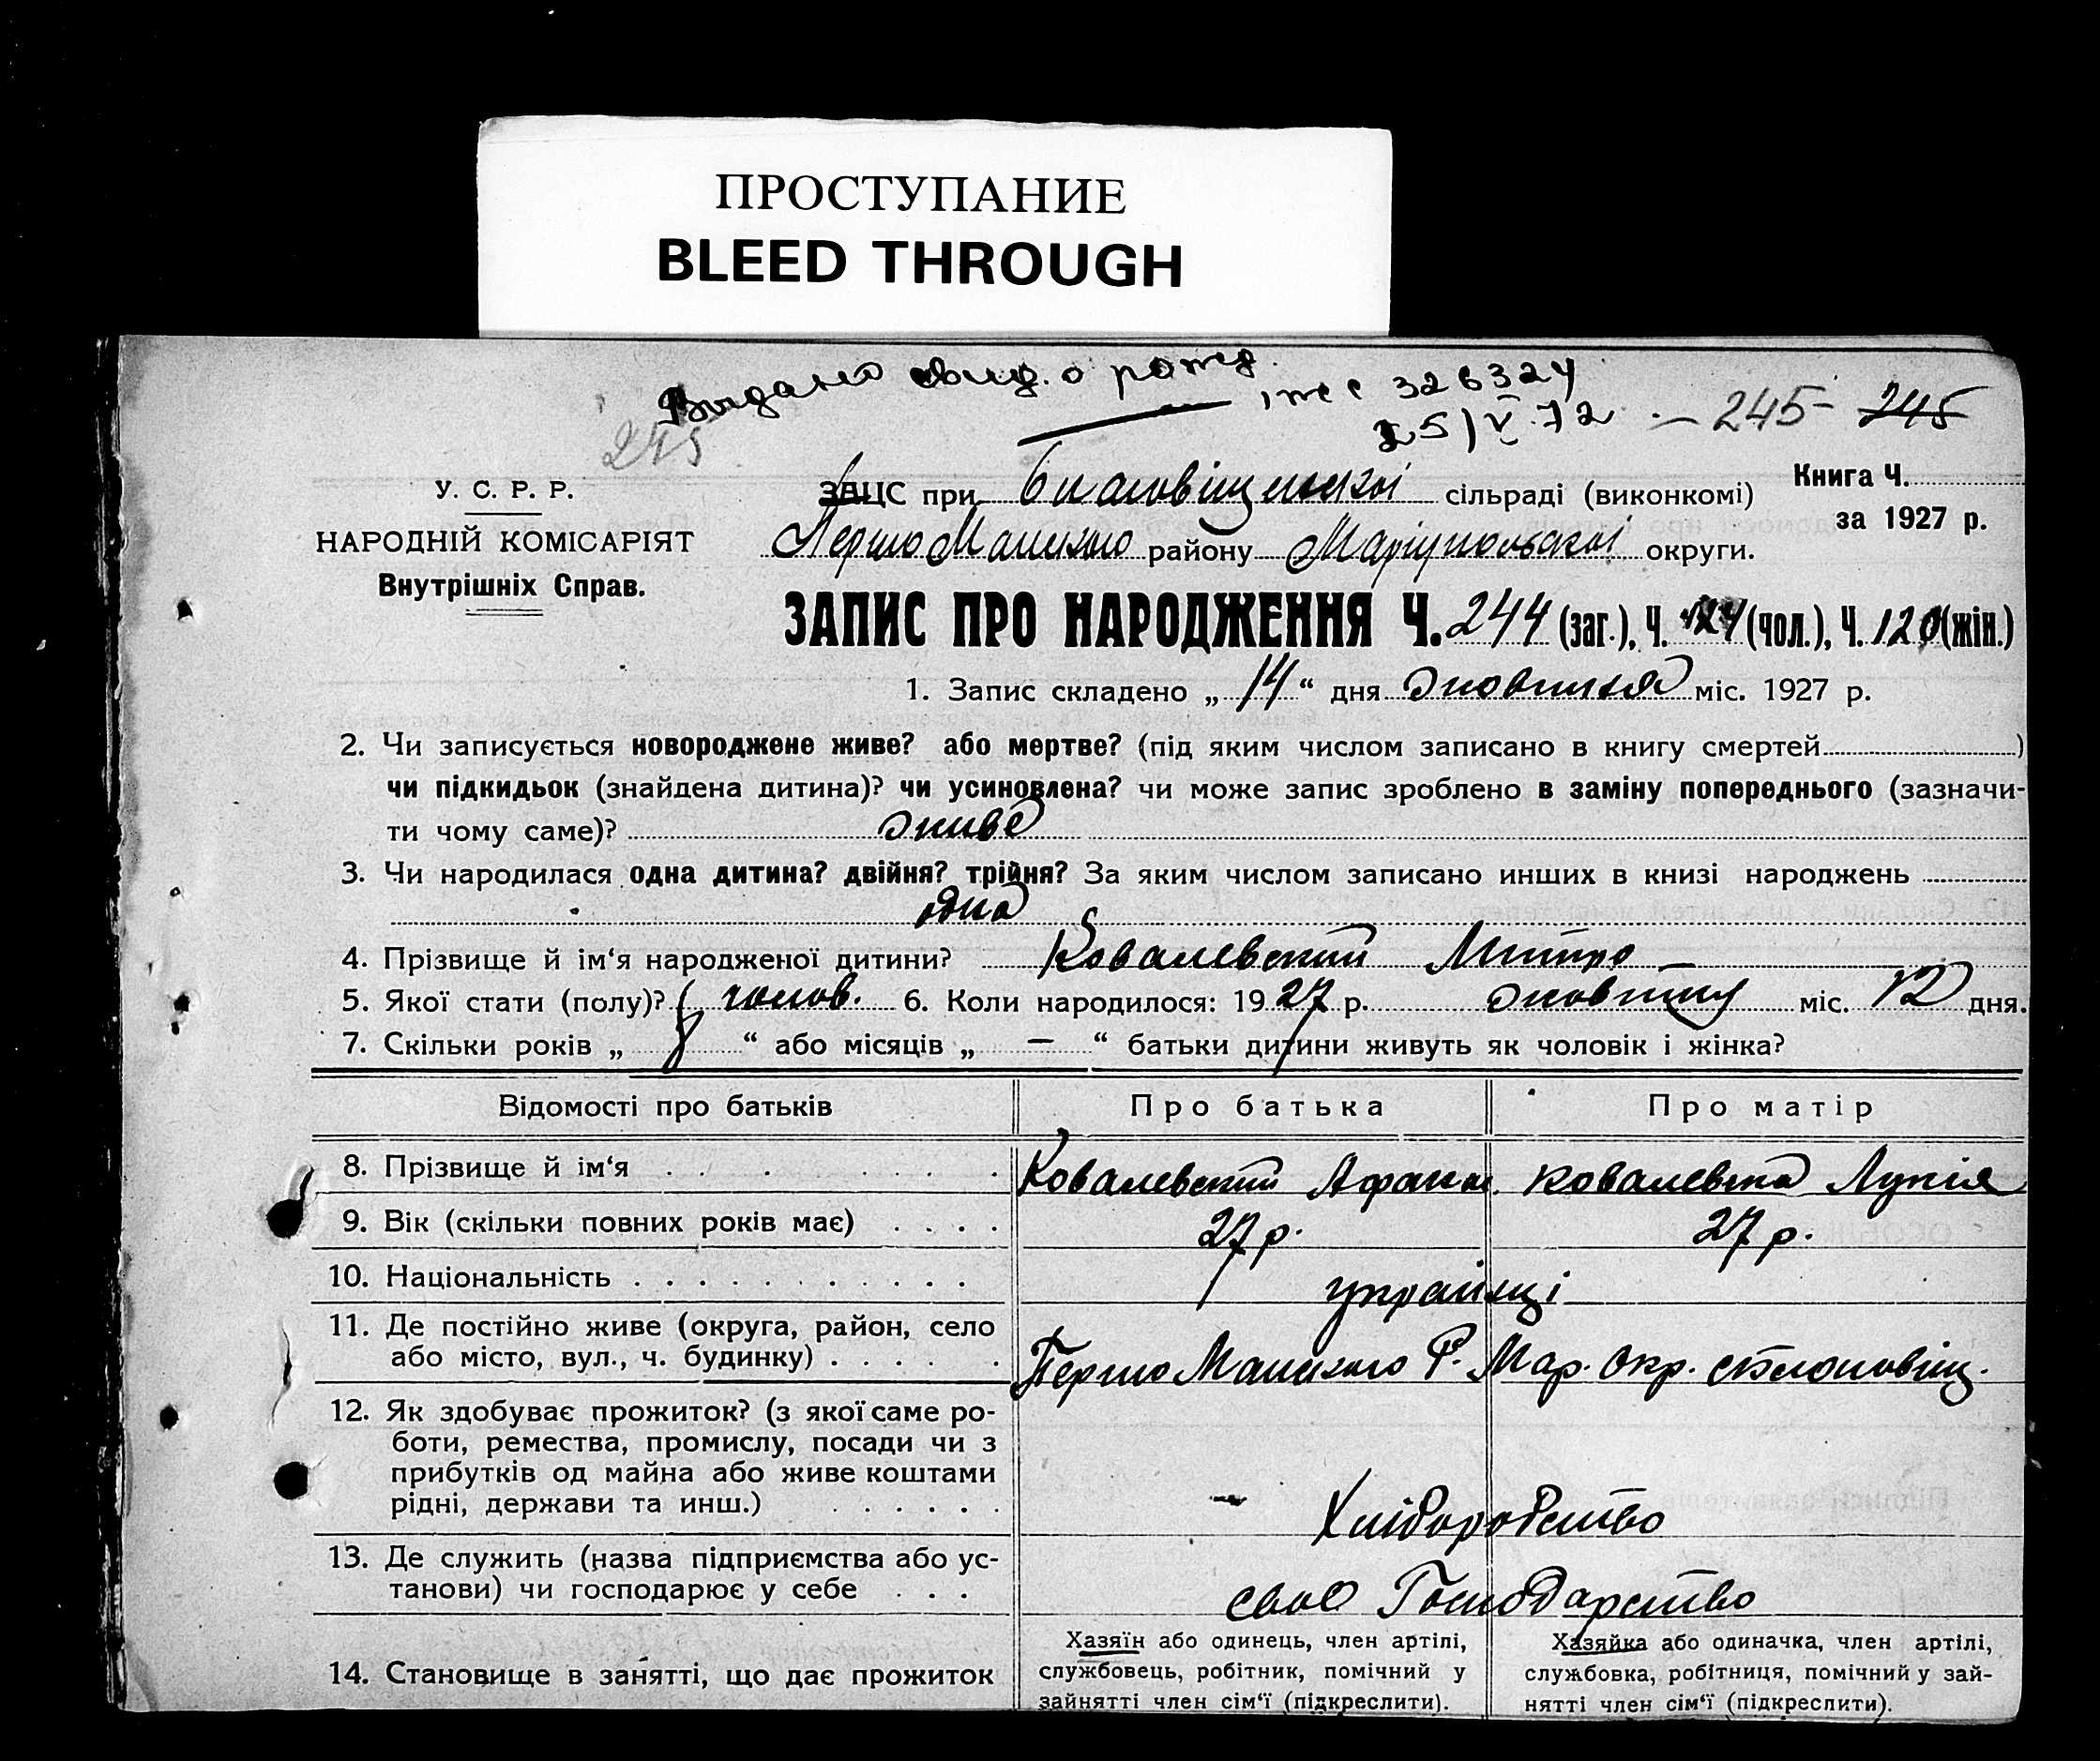 ПРОСТУПАНИЕ
BLEED THROUGH
Видано свид. о рожд.
326324
25/V.72 — 245 – 245
245
У. С. Р. Р.
НАРОДНІЙ КОМІСАРІЯТ
Внутрішніх Справ.
ЗАЦС при сільраді (виконкомі)
Книга Ч.
за 1927 р.
Першо Майського району Маріупольської округи.
ЗАПИС ПРО НАРОДЖЕННЯ Ч. 244 (заг.), Ч. 124 (чол.), Ч. 120 (жін.)
1. Запис складено „ 14 “ дня жовтня міс. 1927 р.
2. Чи записується новороджене живе? або мертве? (під яким числом записано в книгу смертей )
чи підкидьок (знайдена дитина)? чи усиновлена? чи може запис зроблено в заміну попереднього (зазначи-
ти чому саме)? живе
3. Чи народилася одна дитина? двійня? трійня? За яким числом записано инших в книзі народжень
одна
4. Прізвище й ім‘я народженої дитини? Ковалевский Митро —
5. Якої стати (полу)? чолов. 6. Коли народилося: 1927 р. жовтню міс. 12 дня.
7. Скільки років „ 8 “ або місяців „ — “ батьки дитини живуть як чоловік і жінка?
Відомості про батьків Про батька Про матір
8. Прізвище й ім‘я Ковалевский Афанас. Ковалевска Лукія
9. Вік (скільки повних років має) 27 р. 27 р.
10. Національність українці
11. Де постійно живе (округа, район, село
або місто, вул., ч. будинку) Першо Майського Р. Мар. Окр.
12. Як здобуває прожиток? (з якої саме ро-
боти, ремества, промислу, посади чи з
прибутків од майна або живе коштами
рідні, держави та инш.) Хліборобство
13. Де служить (назва підприємства або ус-
танови) чи господарює у себе своє Господарство
14. Становище в занятті, що дає прожиток
Хазяїн або одинець, член артілі,
службовець, робітник, помічний у
зайнятті член сім‘ї (підкреслити).
Хазяйка або одиначка, член артілі,
службовка, робітниця, помічний у зай-
нятті член сім‘ї (підкреслити).